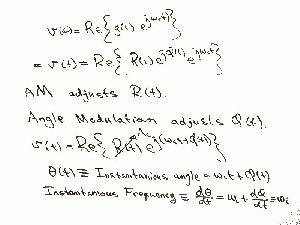 v(t) = Re{g(t) e^{jω_c t}}
= v(t) = Re{R(t) e^{jθ(t)} e^{jω_c t}}
AM adjusts R(t).
Angle Modulation adjusts θ(t).
v(t) = Re{R(t) e^{j(ω_c t + θ(t))}}
θ(t) ≡ Instantanious angle = ω_c t + θ(t)
Instantanious Frequency ≡ dθ/dt = ω_c + dθ/dt ≡ ω_i